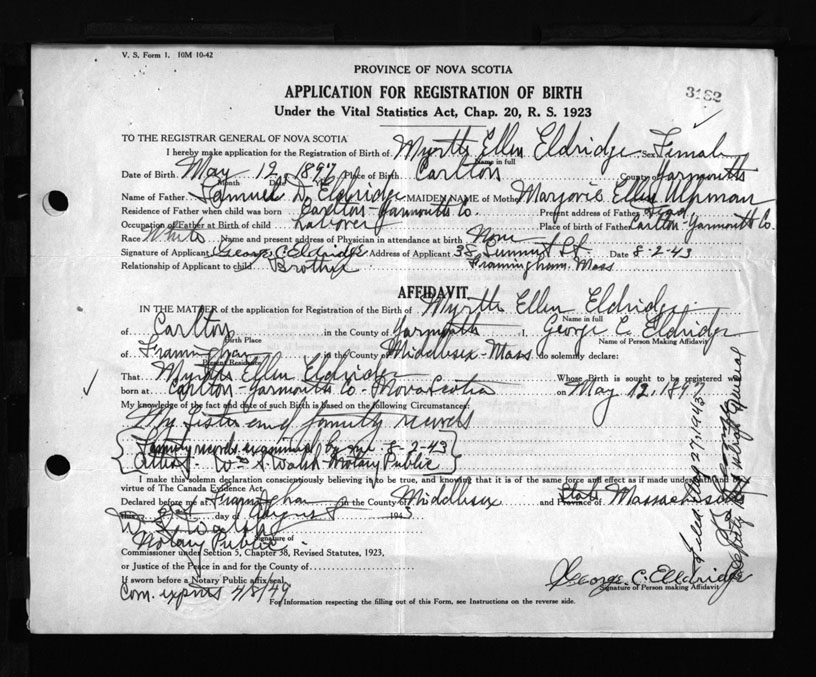 V. S. Form 1. 10M 10-42
PROVINCE OF NOVA SCOTIA
APPLICATION FOR REGISTRATION OF BIRTH
3182
Under the Vital Statistics Act, Chap. 20, R. S. 1923
TO THE REGISTRAR GENERAL OF NOVA SCOTIA
I hereby make application for the Registration of Birth of Myrtle Ellen Eldridge Sex Female
Name in full
Date of Birth May 12, 1897 Place of Birth Carlton County of Yarmouth
Month Day Year
Name of Father Samuel D. Eldridge MAIDEN NAME of Mother Marjorie Ellen
Residence of Father when child was born Carlton-Yarmouth Co. Present address of Father Dead
Occupation of Father at Birth of child Laborer Place of birth of Father Carlton-Yarmouth Co.
Race White Name and present address of Physician in attendance at birth None
Signature of Applicant George C. Eldridge Address of Applicant 38 Summit St Date 8-2-43
Relationship of Applicant to child Brother Framingham, Mass
AFFIDAVIT
IN THE MATTER of the application for Registration of the Birth of Myrtle Ellen Eldridge
Name in full
of Carlton in the County of Yarmouth I, George C. Eldridge
Birth Place Name of Person Making Affidavit
of Framingham in the County of Middlesex-Mass. do solemnly declare:
Present Residence
That Myrtle Ellen Eldridge Whose Birth is sought to be registered was
born at Carlton-Yarmouth Co-Nova Scotia on May 12, 1897
My knowledge of the fact and date of such Birth is based on the following Circumstances:
My sister and family records
Family records examined by me 8-2-43
Attest- Wm S. Walsh Notary Public
I make this solemn declaration conscientiously believing it to be true, and knowing that it is of the same force and effect as if made under oath and by
virtue of The Canada Evidence Act.
Declared before me at Framingham in the County of Middlesex and State Province of Massachusetts
day of August 1943
Wm S. Walsh
Signature of
Notary Public
Commissioner under Section 5, Chapter 38, Revised Statutes, 1923,
or Justice of the Peace in and for the County of
If sworn before a Notary Public affix seal.
Com. expires 4/8/49
George C. Eldridge
Signature of Person making Affidavit
For Information respecting the filling out of this Form, see Instructions on the reverse side.
Filed Aug 27, 1943
Deputy Registrar General